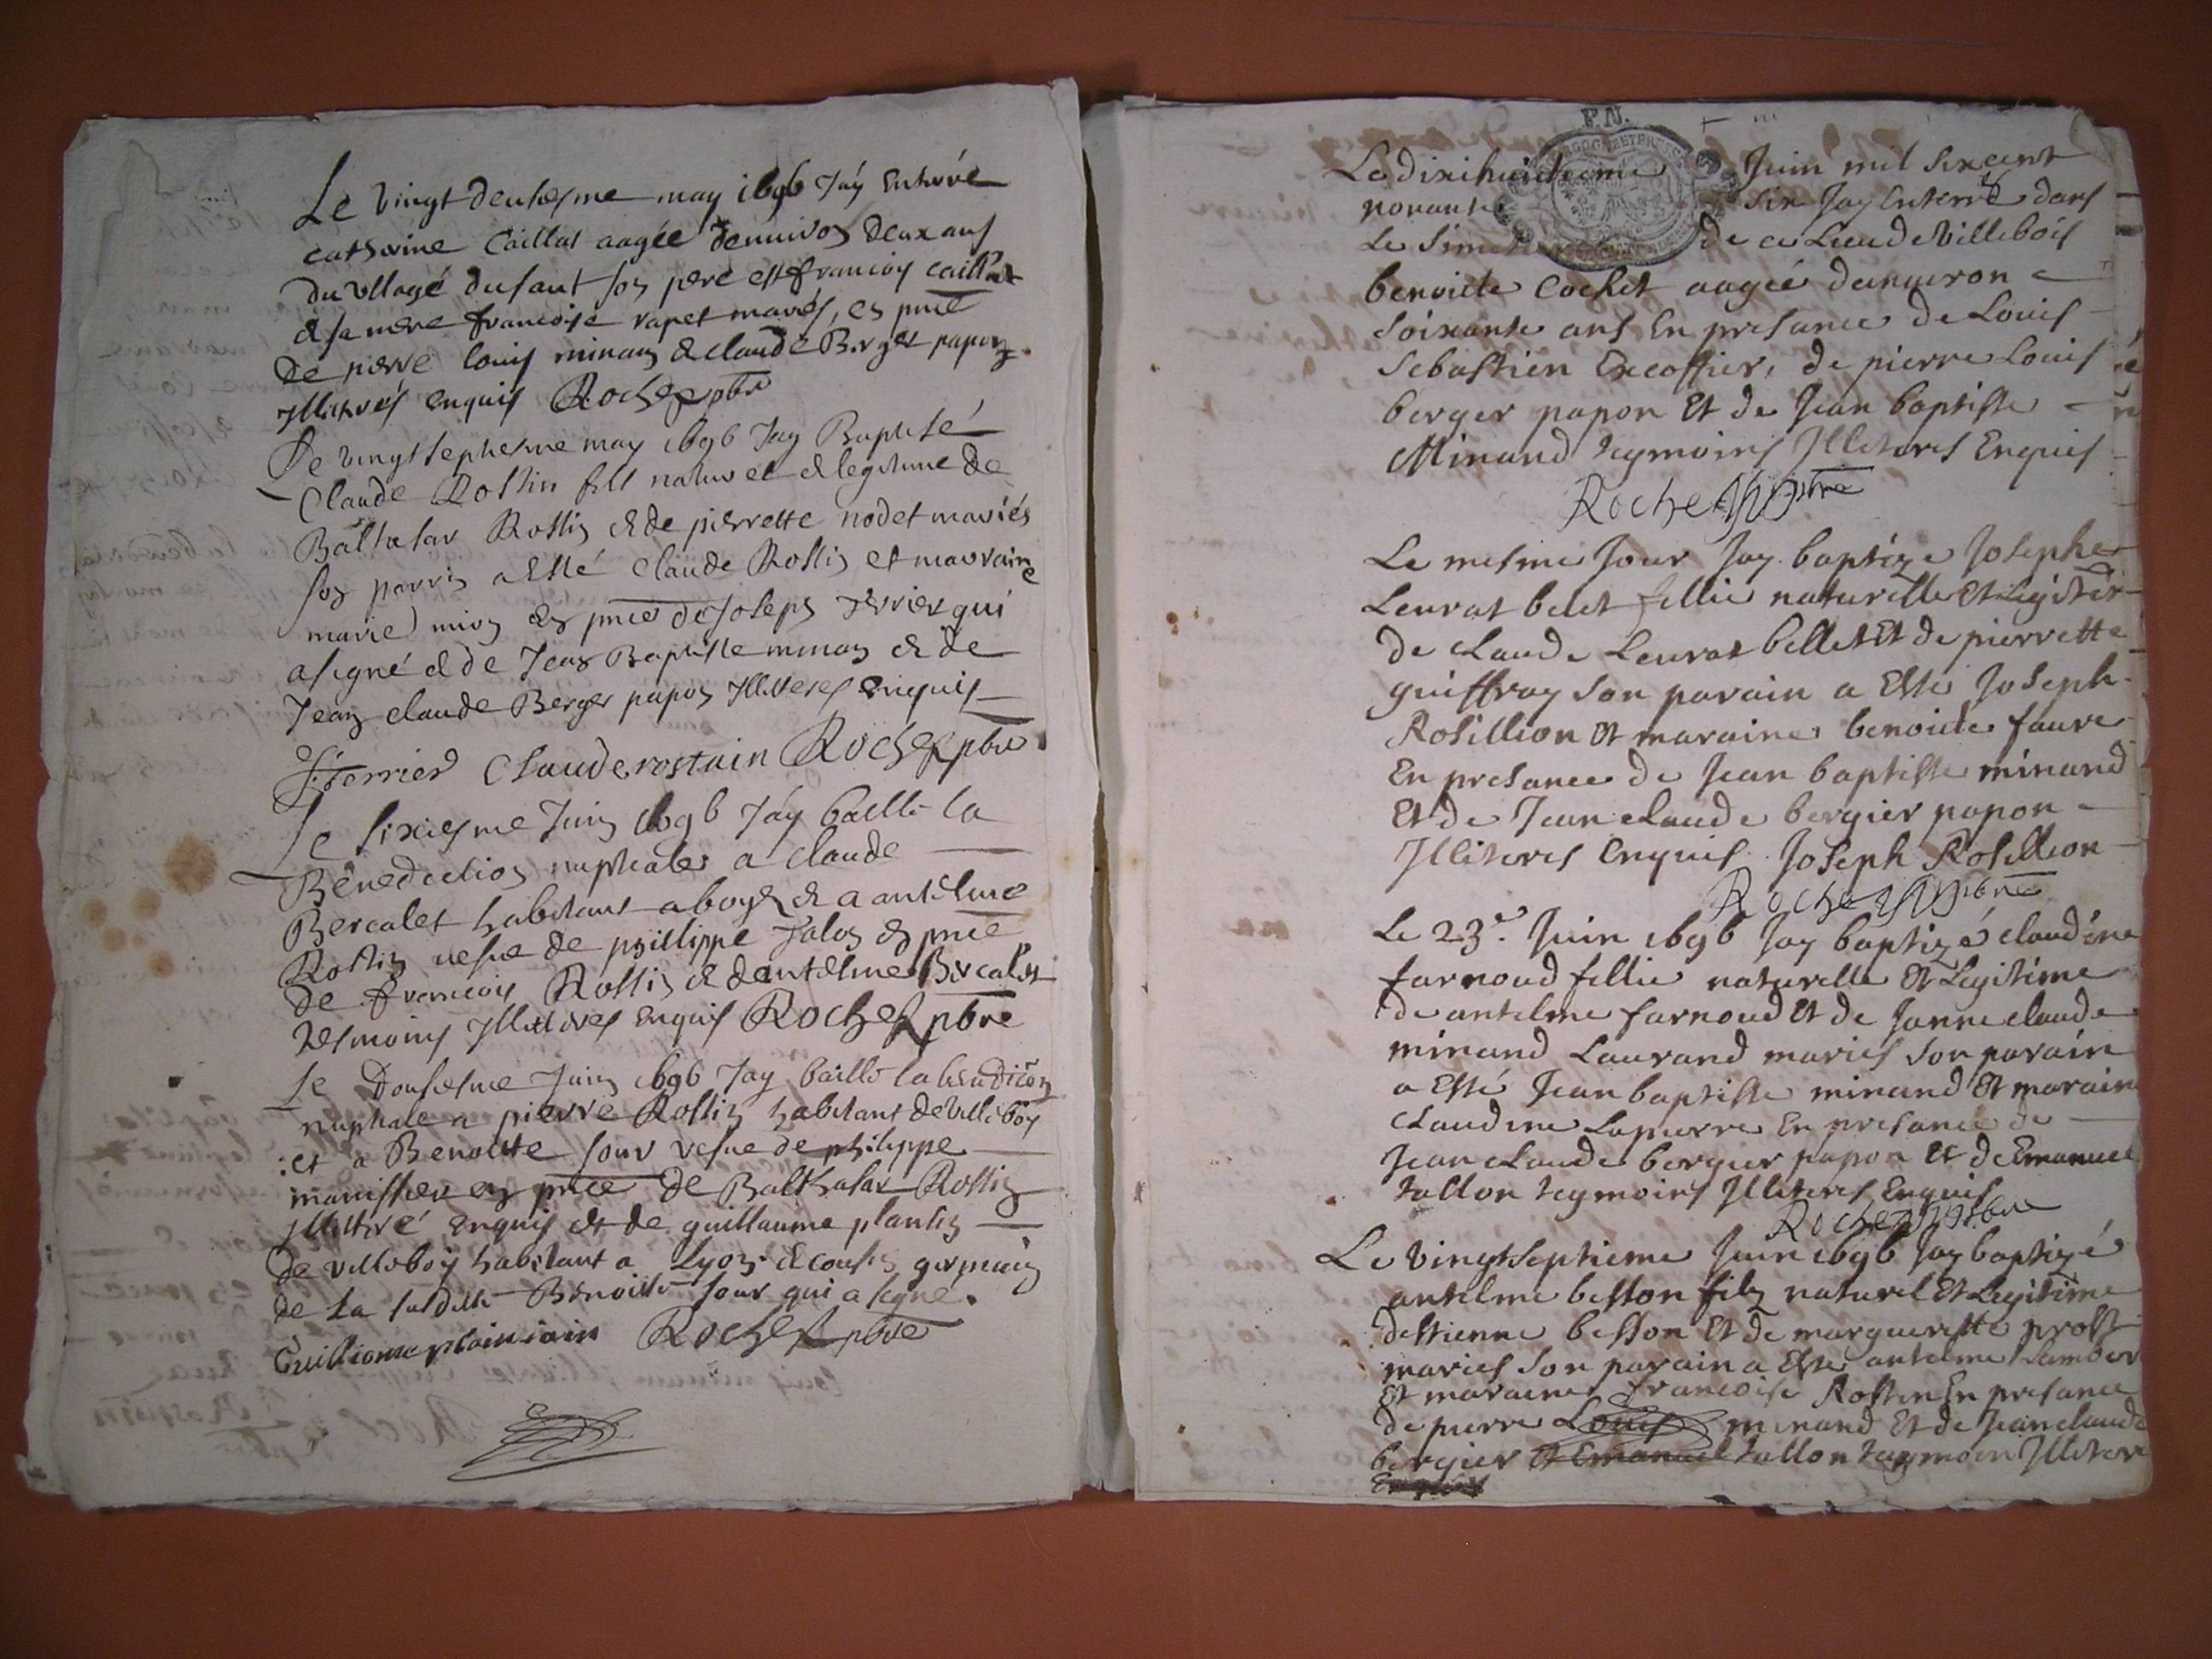 Le vingt deusiesme may 1696 Jay Enterré
catherine Caillat aagée denuiron deux ans
du village du saut son pere est francois caillat
& sa mere francoise rapet mariés, en pnce
de pierre louis minan & claude Berger papon
Illiterés enquis Roche pbre
Le vingt septiesme may 1696 Jay Baptisé
Claude Rostin fils naturel & legitime de
Baltasar Rostin & de pierrette nodet mariés
son parrin a Esté Claude Rostin et marraine
marie miron en pnce de Joseph ferrier qui
a signé & de Jean Baptiste minan & de
Jean claude Berger papon Illiteres enquis
J. ferrier Claude rostain Roche pbre
Le sixiesme Juin 1696 Jay baillé la
Benediction nuptiale a claude
Bercalet habitant a boye & a antelme
Rostin vefue de phillippe falon en pnce
de francois Rostin & dantelme Bercalet
tesmoins Illiteres enquis Roche pbre
Le Dousiesme Juin 1696 Jay baillé la bendiction
nuptiale a pierre Rostin habitant de villeboy
et a Benoitte jour vefue de philippe
marissier en pnce de Balthasar Rostin
Illitéré enquis & de guillaume plantin
de villeboy habitant a Lyon & cousin germain
de la susditte Benoitte jour qui a signé.
Guilliaume Roche pbre
P.N.
Le dixihuictieme de Juin mil six cent
nonante six Jay Enterré dans
Le Simetiere de ce Lieu de Villebois
benoitte Cochet aagée denuiron
Soixante ans En presance de Louis
Sebastien Excoffier, de pierre Louis
berger papon Et de Jean baptiste
Minand tesmoins Illiteres Enquis
Roche pbre
Le mesme Jour Jay baptize Josephe
Leurat belet fillie naturelle Et Legitime
de claude Leurat bellet Et de pierrette
guiffray Son parain a Esté Joseph
Rosillion Et maraine benoite faure
En presance de Jean baptiste minand
Et de Jean claude bergier papon
Illiteres Enquis Joseph Rosillion
Roche pbre
Le 23e. Juin 1696 Jay baptizé claudine
farnoud fillie naturelle Et Legitime
de antelme farnoud Et de Janne claude
minand Laurand mariés Son parain
a Esté Jean baptiste minand Et maraine
Claudine Lapierre En presance de
Jean claude bergier papon Et de Emanuel
tallon tesmoins Illiteres Enquis
Roche pbre
Le vingt Septieme Juin 1696 Jay baptizé
antelme besson filz naturel Et Legitime
destienne besson Et de marguerette prost
mariés Son parain a Esté antelme Lambert
Et maraine francoise Rostin En presance
de pierre Louis minand Et de Jean claude
bergier Et Emanuel tallon tesmoin Illitere
Enquis